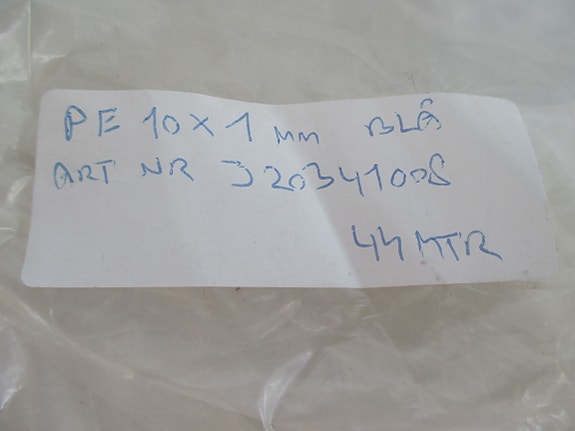 PE 10 X 1 MM BLÅ
ART NR J20341008
44 MTR